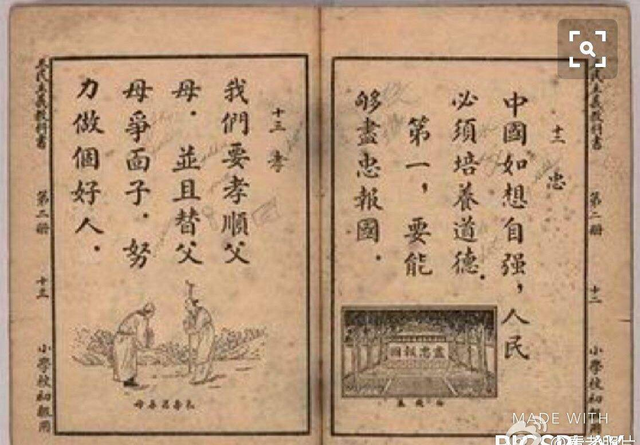 三民主義教科書 第二册 十二 小學校初級用
十二 忠
中國如想自强，人民
必須培養道德．
第一，要能
够盡忠報國．
盡忠報國
十三 孝
我們要孝順父
母．並且替父
母爭面子．努
力做個好人．
三民主義教科書 第二册 十三 小學校初級用
MADE WITH